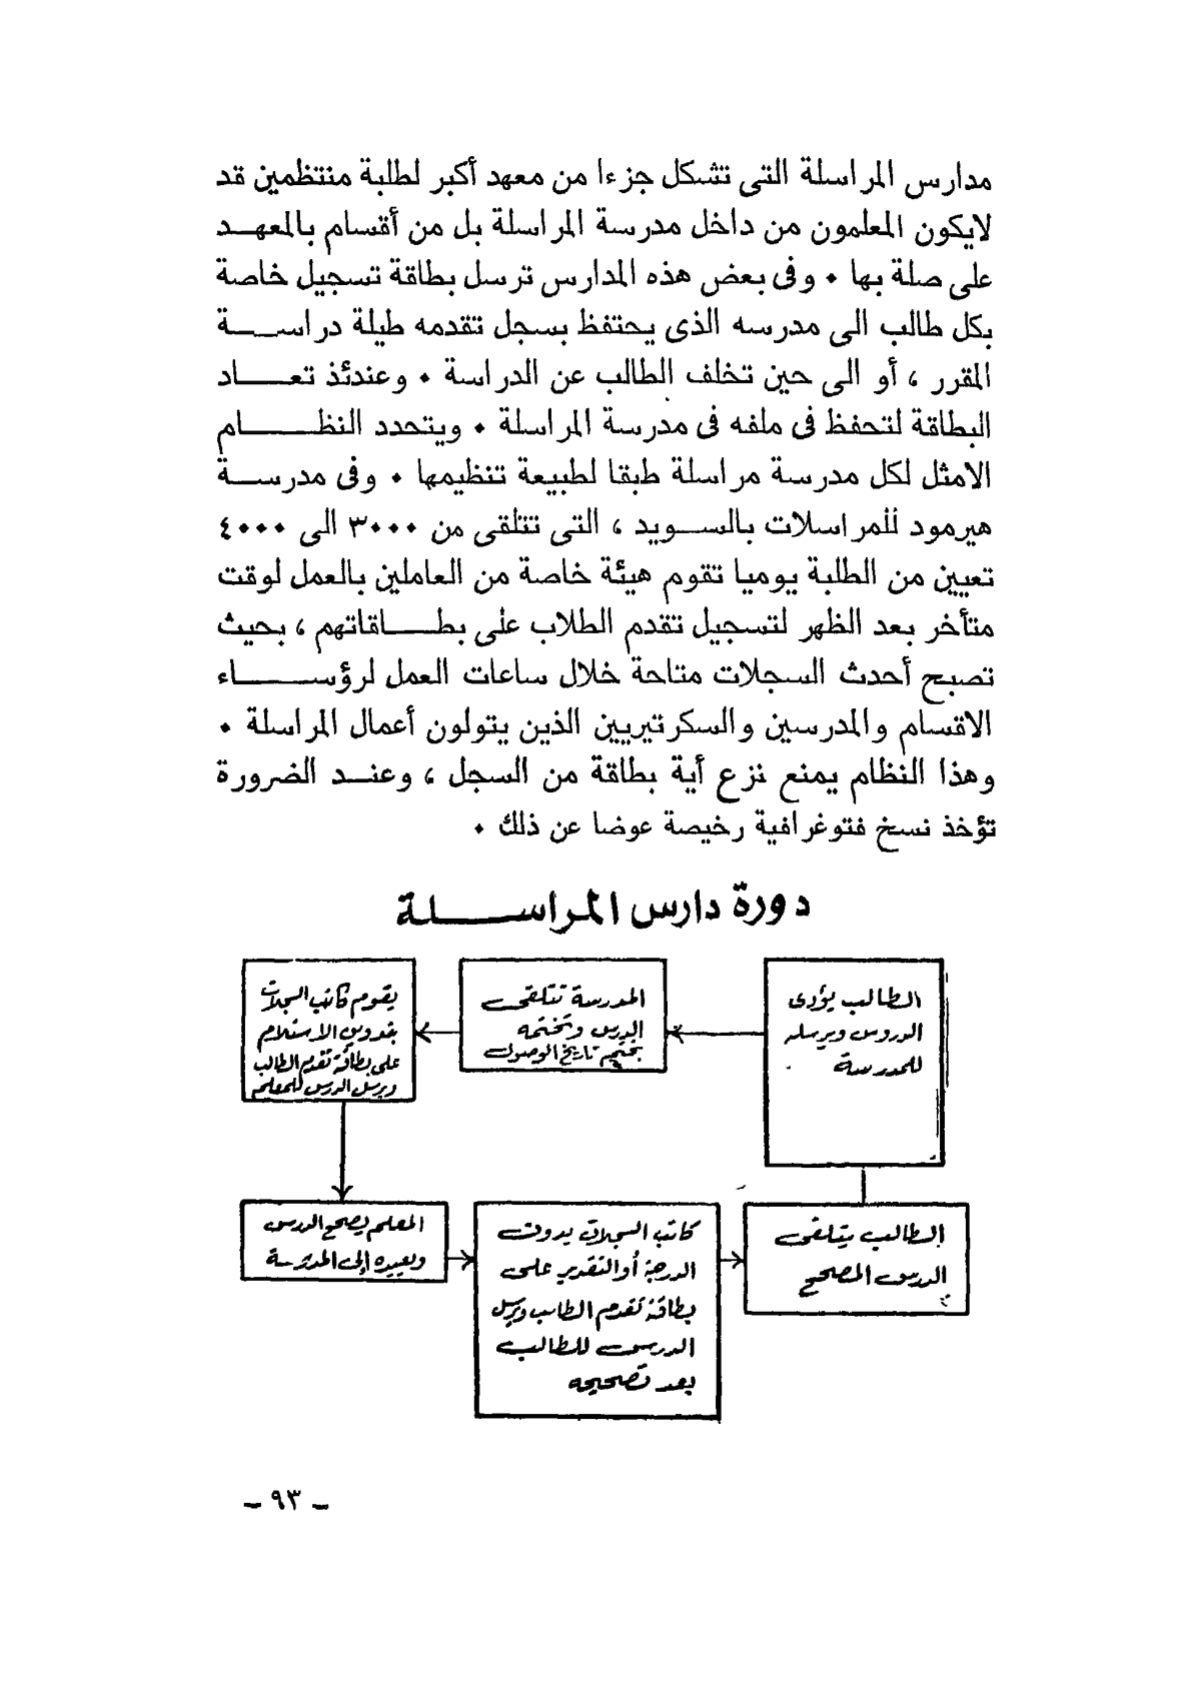 مدارس المراسلة التى تشكل جزءا من معهد أكبر لطلبة منتظمين قد
لايكون المعلمون من داخل مدرسة المراسلة بل من أقسام بالمعهد
على صلة بها ٠ وفى بعض هذه المدارس ترسل بطاقة تسجيل خاصة
بكل طالب الى مدرسه الذى يحتفظ بسجل تقدمه طيلة دراسة
المقرر ، أو الى حين تخلف الطالب عن الدراسة ٠ وعندئذ تعاد
البطاقة لتحفظ فى ملفه فى مدرسة المراسلة ٠ ويتحدد النظام
الامثل لكل مدرسة مراسلة طبقا لطبيعة تنظيمها ٠ وفى مدرسة
هيرمود للمراسلات بالسويد ، التى تتلقى من ٣٠٠٠ الى ٤٠٠٠
تعيين من الطلبة يوميا تقوم هيئة خاصة من العاملين بالعمل لوقت
متأخر بعد الظهر لتسجيل تقدم الطلاب على بطاقاتهم ، بحيث
تصبح أحدث السجلات متاحة خلال ساعات العمل لرؤساء
الاقسام والمدرسين والسكرتيريين الذين يتولون أعمال المراسلة ٠
وهذا النظام يمنع نزع أية بطاقة من السجل ، وعند الضرورة
تؤخذ نسخ فتوغرافية رخيصة عوضا عن ذلك ٠
دورة دارس المراسلة
الطالب يؤدى
الدروس ويرسله
للمدرسة
المدرسة تتلقى
الدرس وتختمه
بختم تاريخ الوصول
يقوم كاتب السجلات
بتدوين الاستلام
على بطاقة تقدم الطالب
ويرسل الدرس للمعلم
المعلم يصحح الدرس
ويعيده إلى المدرسة
كاتب السجلات يدون
الدرجة أو التقدير على
بطاقة تقدم الطالب ويرسل
الدرس للطالب
بعد تصحيحه
الطالب يتلقى
الدرس المصحح
– ٩٣ –